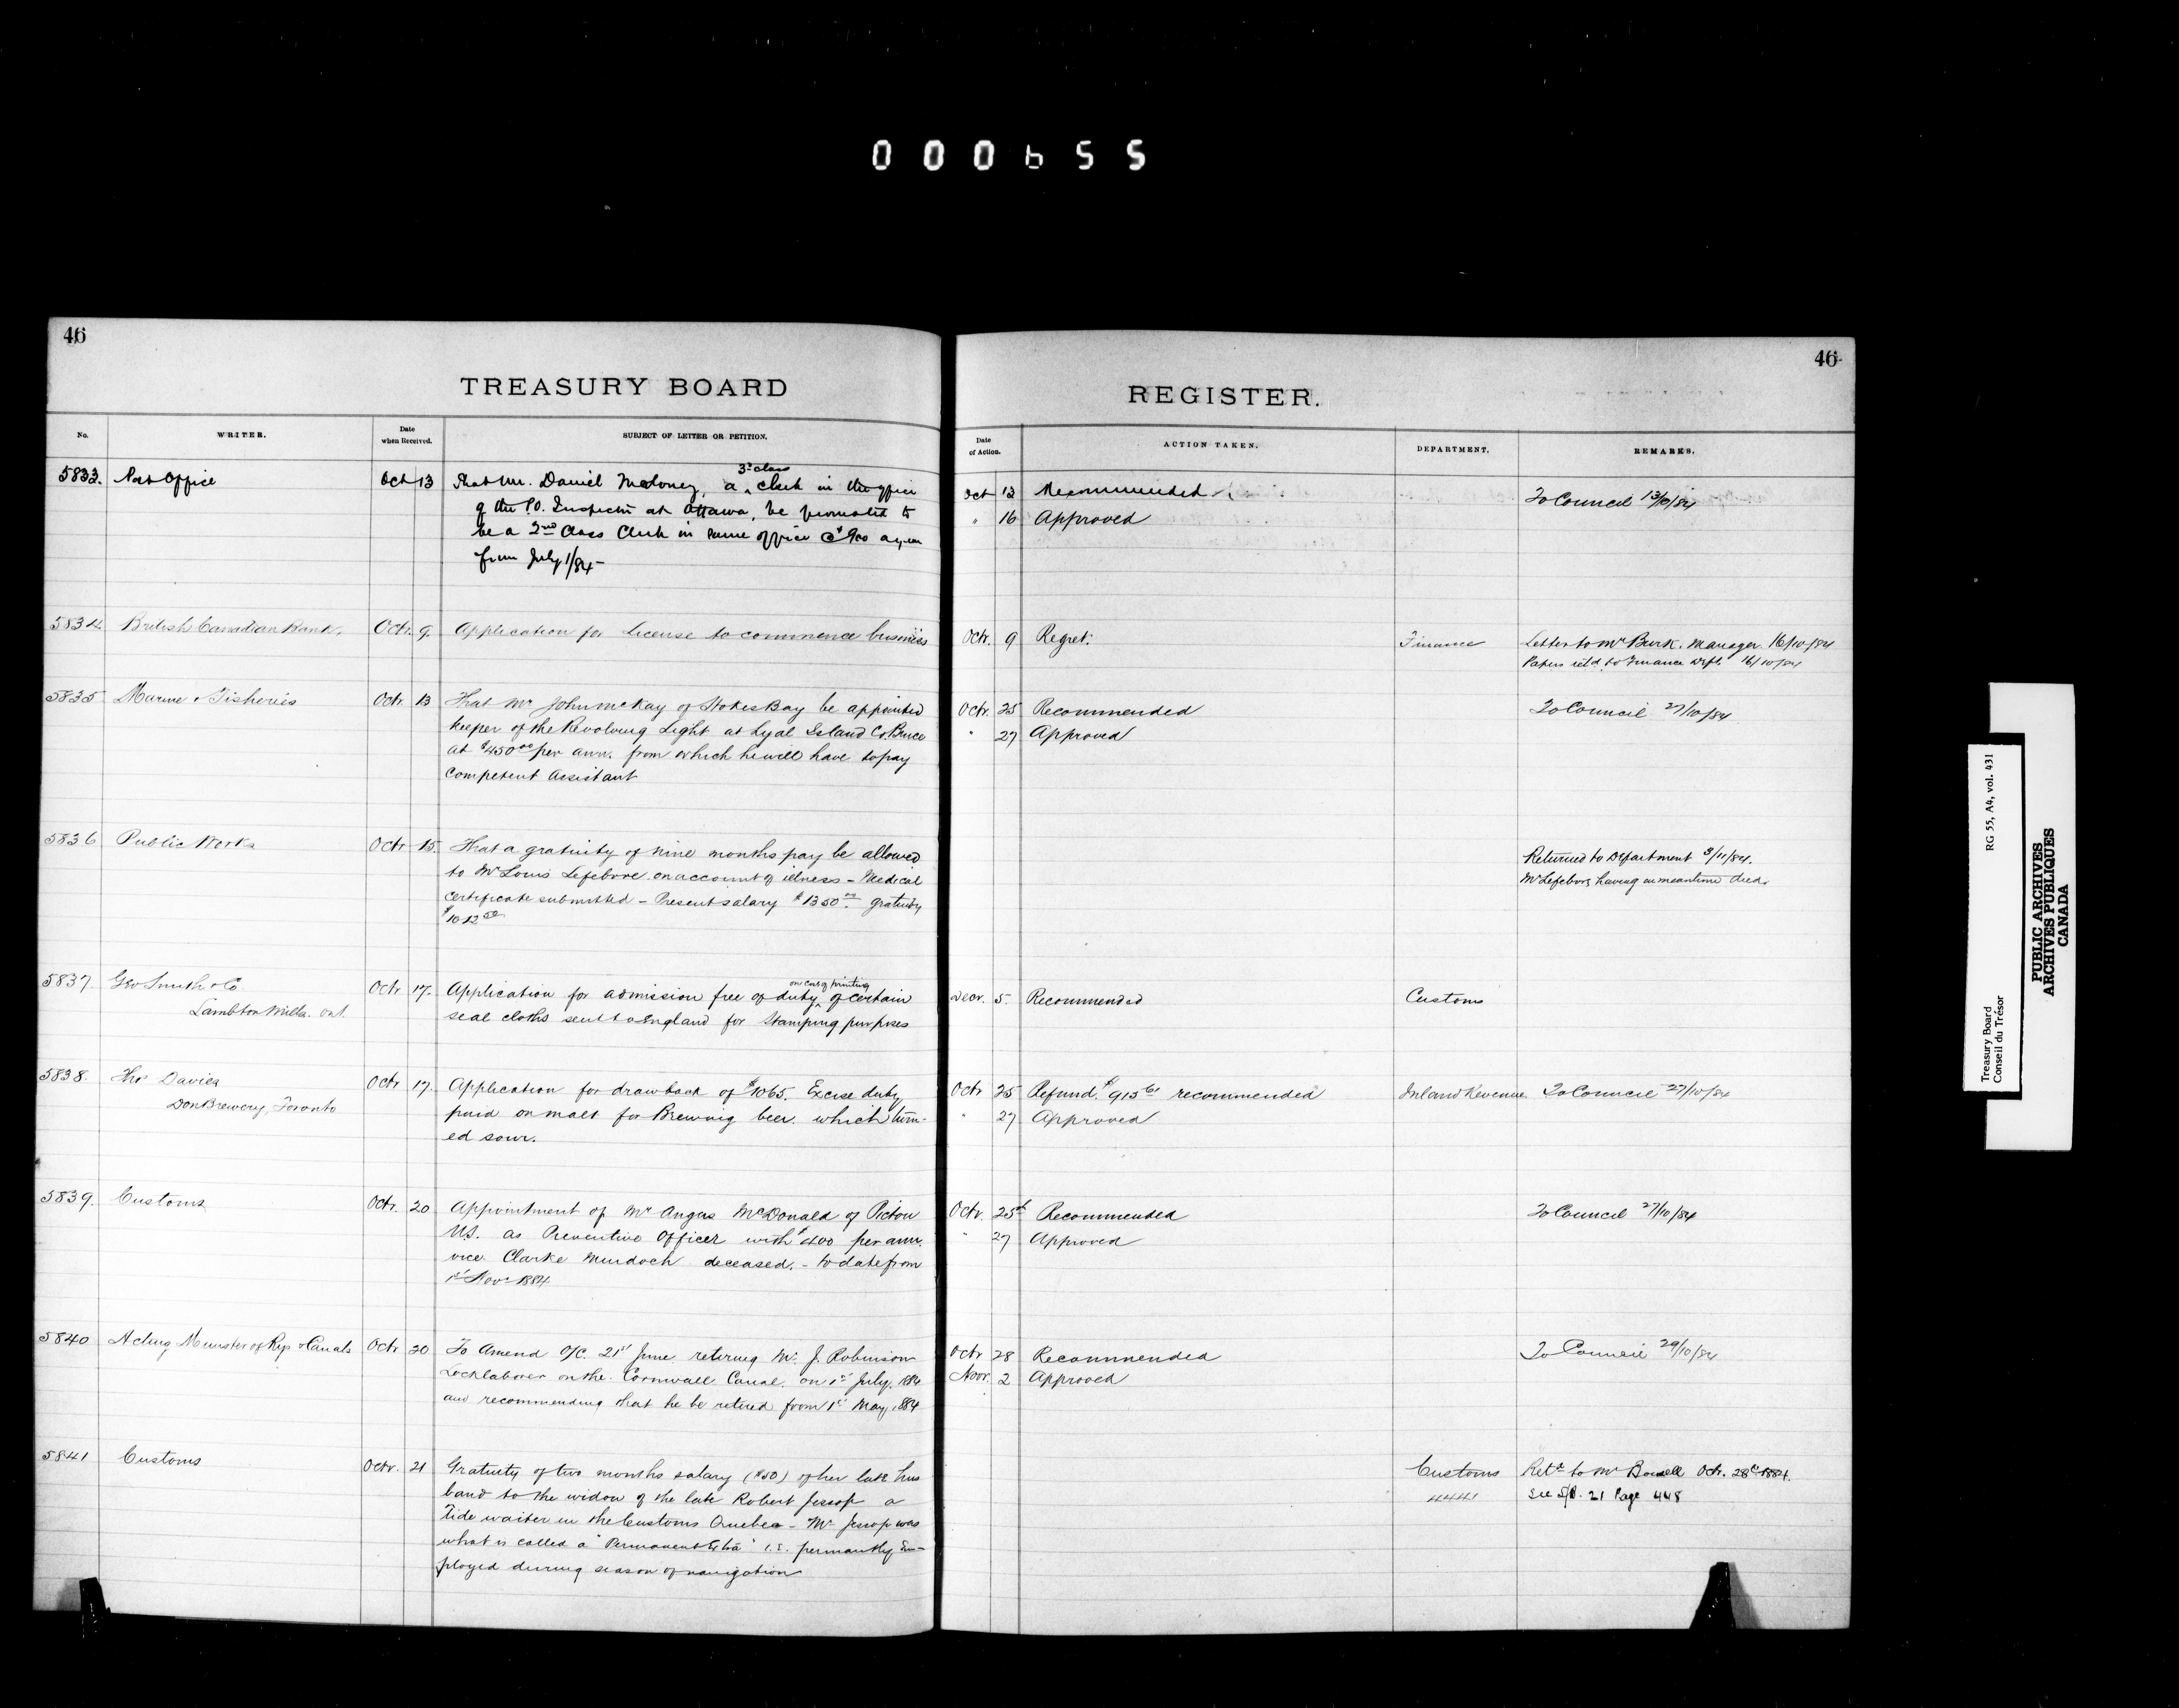 000655
46
TREASURY BOARD
No.
WRITER.
Date when Received.
SUBJECT OF LETTER OR PETITION.
5833. Post Office Oct 13 That Mr. Daniel Maloney, a 3d class Clerk in the office
of the P.O. Inspector at Ottawa, be promoted to
be a 2nd Class Clerk in same office @ $900 a year
from July 1/84 -
5834 British Canadian Bank. Octr. 9. Application for License to commence business
5835 Marine & Fisheries Octr. 13 That Mr John McKay of Stokes Bay be appointed
keeper of the Revolving Light at Lyal Island Co. Bruce
at $450.00 per ann. from which he will have to pay
Competent Assistant
5836 Public Works Octr 15. That a gratuity of nine months pay be allowed
to Mr Louis Lefebvre on account of illness - Medical
certificate submitted - Present salary $1350.00 gratuity
$1012.50
5837. Geo Smith & Co. Octr 17. Application for admission free of duty on cost of printing of certain
Lambton Mills. Ont seal cloths sent to England for Stamping purposes
5838. Thos Davies Octr 17. Application for drawback of $1065. Excise duty
Don Brewery, Toronto paid on malt for Brewing beer. which turn-
ed sour.
5839. Customs Octr. 20 Appointment of Mr Angus McDonald of Pictou
N.S. as Preventive Officer with $400 per ann.
vice Clarke Murdoch deceased. - to date from
1st Novr 1884
5840 Acting Minister of Rys & Canals Octr 20 To Amend O/C. 21st June retiring Mr. J. Robinson
Locklaborer on the Cornwall Canal. on 1st July, 1884
and recommending that he be retired from 1st May, 1884
5841 Customs Octr. 21 Gratuity of two months salary ($50) of her late hus
band to the widow of the late Robert Jessop a
Tide waiter in the Customs Quebec - Mr Jessop was
what is called a "Permanent Extra" i.e. permantly Em-
ployed during season of navigation
46
REGISTER.
Date of Action.
ACTION TAKEN.
DEPARTMENT.
REMARKS.
Oct 13 Recommended To Council 13/10/84
" 16 Approved
Octr. 9 Regret. Finance Letter to Mr Burk. Manager 16/10/84
Papers ret'd to Finance Dept. 16/10/84
Octr. 25 Recommended To Council 27/10/84
" 27 Approved
Returned to Department 3/11/84.
Mr Lefebvre having in meantime died.
Decr. 5. Recommended Customs
Octr 25 Refund $915.61 recommended Inland Revenue To Council 27/10/84
" 27 Approved
Octr. 25th Recommended To Council 27/10/84
" 27 Approved
Octr 28 Recommended To Council 29/10/84
Novr. 2 Approved
Customs Retd to Mr Bowell Oct. 28th 1884.
4441 See 21 Page 448
Treasury Board
Conseil du Trésor
RG 55, A4, vol. 431
PUBLIC ARCHIVES
ARCHIVES PUBLIQUES
CANADA